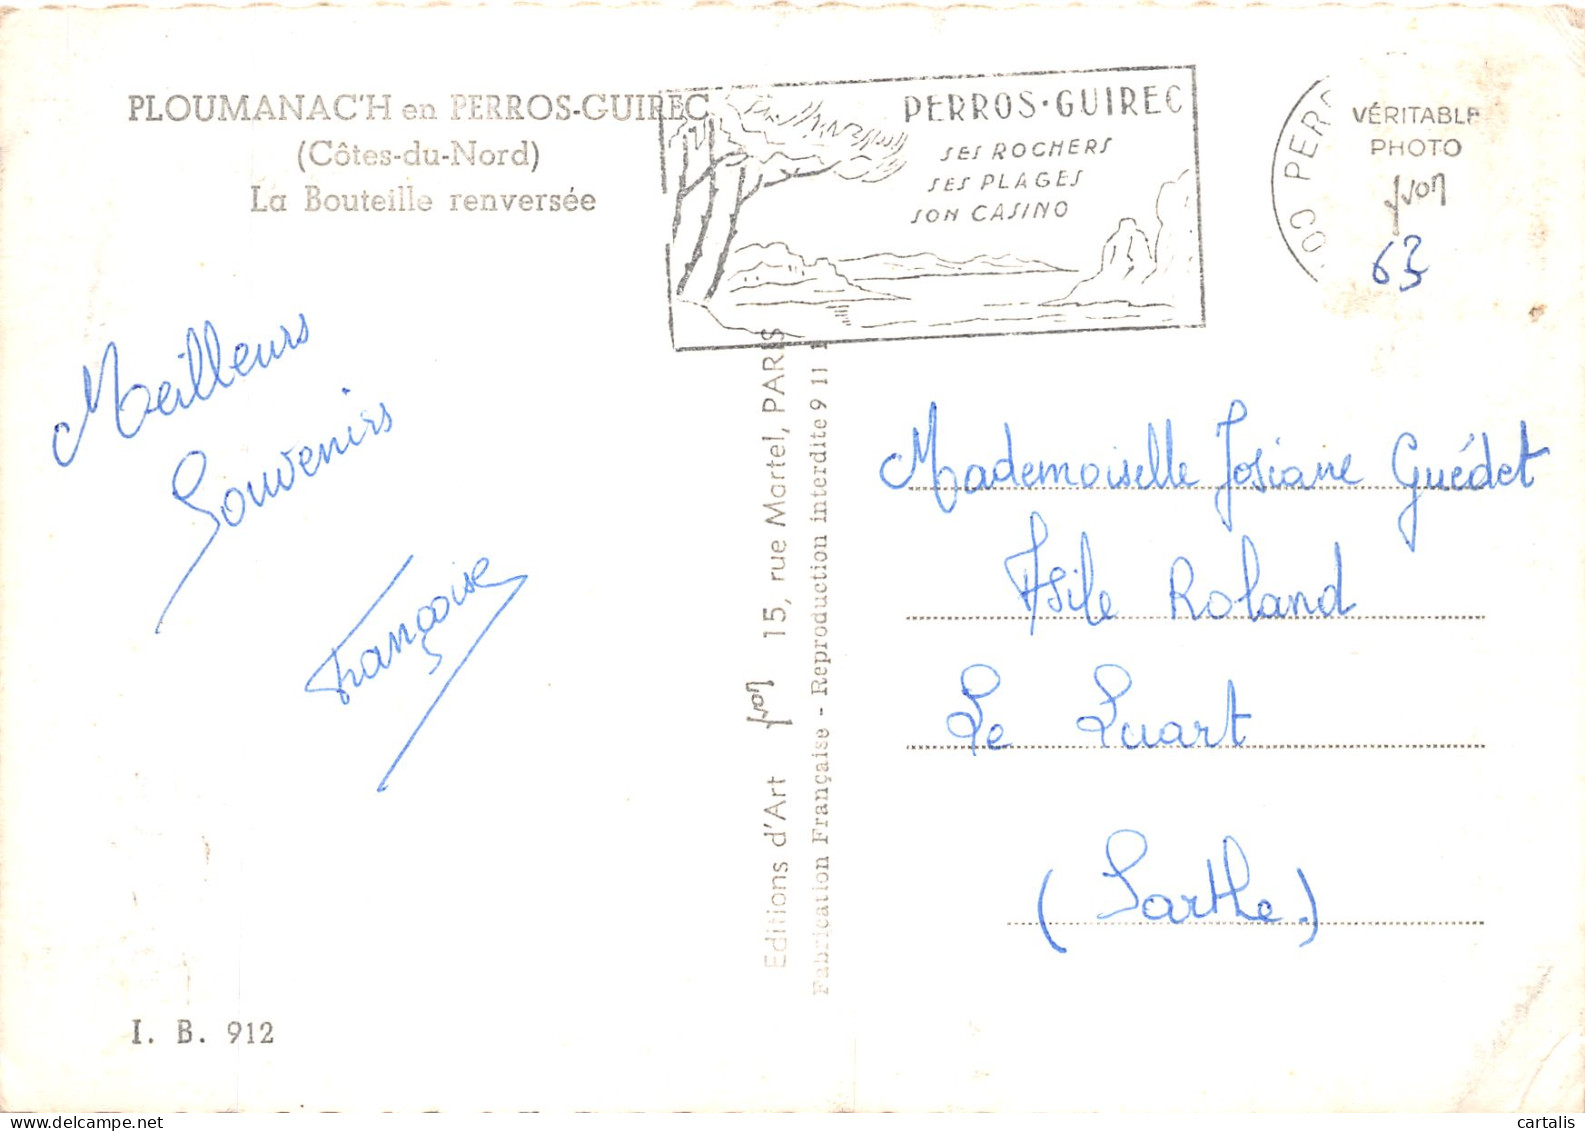 PLOUMANAC'H en PERROS-GUIREC
(Côtes-du-Nord)
La Bouteille renversée
PERROS-GUIREC
SES ROCHERS
SES PLAGES
SON CASINO
VÉRITABLE
PHOTO
yvon
63
Meilleurs
Souvenirs
Françoise
Editions d'Art yvon 15, rue Martel, PARIS
Fabrication Française - Reproduction interdite 9 11
Mademoiselle Josiane Guédet
Asile Roland
Le Luart
(Sarthe.)
I. B. 912
delcampe.net
cartalis